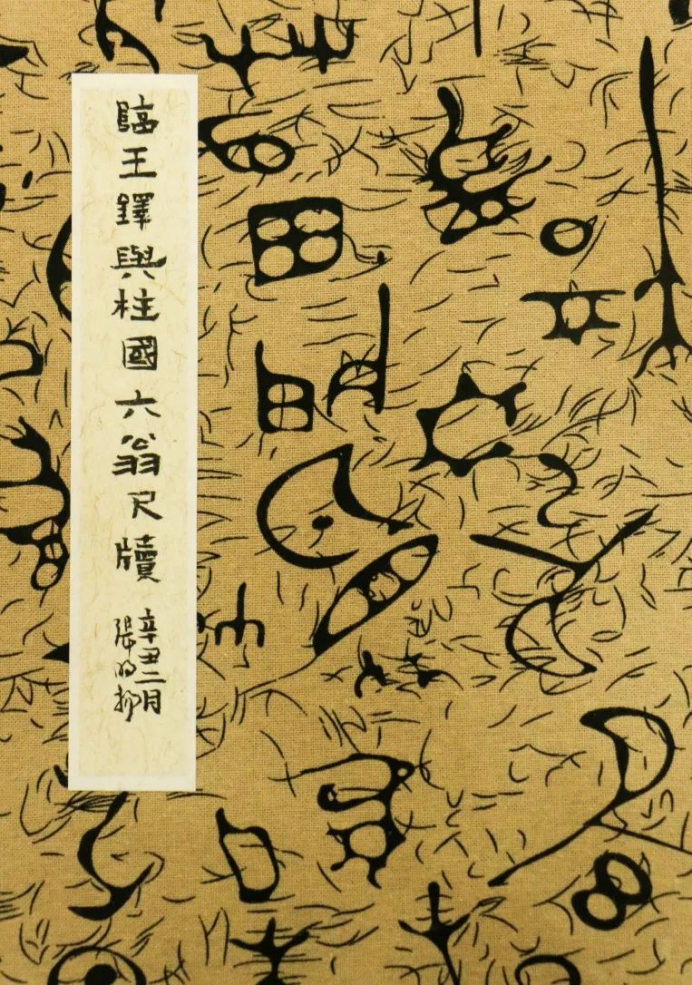 臨王鐸與柱國六翁尺牘
辛丑二月
張明